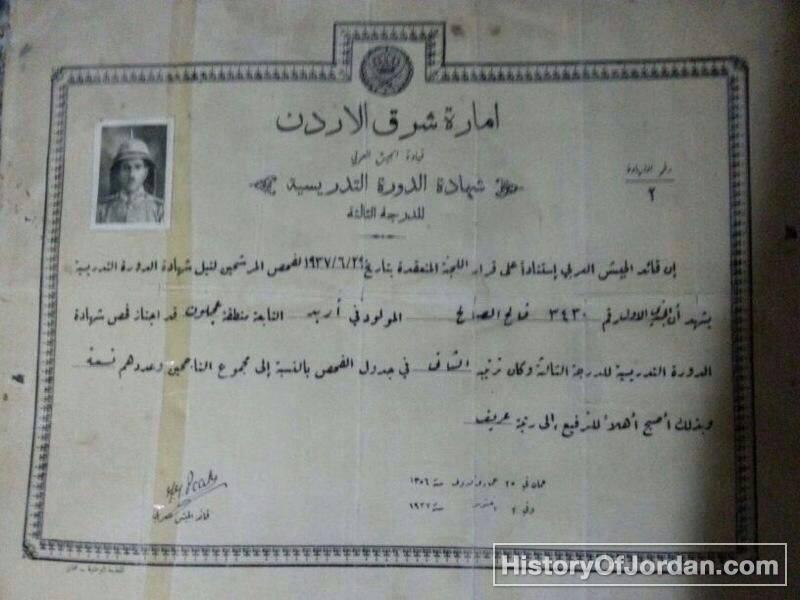 امارة شرق الاردن
قيادة الجيش العربي
رقم الشهادة
٢
شهادة الدورة التدريسية
للدرجة الثالثة
إن قائد الجيش العربي إستناداً على قرار اللجنة المنعقدة بتاريخ ١٩٣٧/٦/٢٩ لفحص المرشحين لنيل شهادة الدورة التدريسية
يشهد أن الاول رقم ٣٤٣٠ فالح الصالح المولود في أربد التابعة منطقة عجلون قد اجتاز فحص شهادة
الدورة التدريسية للدرجة الثالثة وكان ترتيبه في جدول الفحص بالنسبة إلى مجموع الناجحين وعددهم تسعة
وبذلك أصبح أهلاً للترفيع إلى رتبة عريف
عمان في ٢٥ سنة ١٣٥٦
وفي سنة ١٩٣٧
قائد الجيش العربي
HistoryOfJordan.com